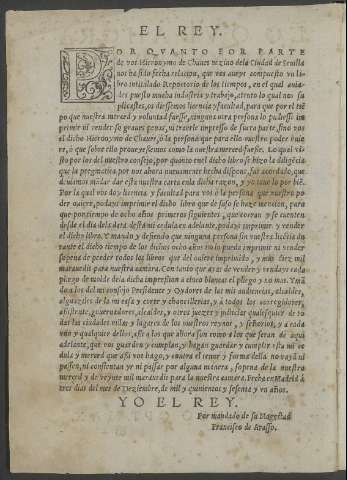 EL REY.
POR QVANTO POR PARTE
de vos Hieronymo de Chaues vezino dela Ciudad de Seuilla
nos ha sido fecha relacion, que vos aueys compuesto vn li-
bro intitulado Reportorio de los tiempos, en el qual auia-
des puesto mucha industria y trabajo, atento lo qual nos su
plicastes, os diessemos licencia y facultad, para que por el tiẽ
po que nuestra merced y voluntad fuesse, ninguna otra persona lo pudiesse im
primir ni vender so graues penas, ni traerle impresso de fuera parte, sino vos
el dicho Hieronymo de Chaues, ò la persona que para ello vuestro poder vuie,
ò que sobre ello proueyessemos como la nuestra merced fuesse. Lo qual vi-
sto por los del nuestro consejo, por quanto en el dicho libro se hizo la diligẽcia
que la pregmatica por nos ahora nueuamente hecha dispone, fue acordado, que
deuiamos mãdar dar esta nuestra carta en la dicha razon, y yo tuue lo por biẽ.
Por la qual vos doy licencia y facultad para vos ò la persona que vuestro po-
der ouiere, podays imprimir el dicho libro que de suso se haze mencion, para
que por tiempo de ocho años primeros siguientes, que corran y se cuenten
desde el dia dela data desta mi cedula en adelante, podays imprimir y vender
el dicho libro. Y mando y defiendo que ninguna persona sin vuestra licẽcia du
rante el dicho tiempo de los dichos ocho años no lo pueda imprimir ni vender
sopena de perder todos los libros que del ouiere imprimido, y mas diez mil
marauedis para nuestra camara. Con tanto que ayas de vender y vendays cada
pliego de molde dela dicha impression a cinco blancas el pliego y no mas. Y mã
do a los del mi consejo Presidente y Oydores de las mis audiencias, alcaldes,
alguaziles de la mi casa y corte y chancillerias, y à todos los corregidores,
assistente, gouernadores, alcaldes, y otros juezes y justicias qualesquier de to
das las ciudades villas y lugares de los nuestros reynos, y señorios, y a cada
vno y qualquier dellos, assi a los que ahora son como a los que seran de aqui
adelante, que vos guarden y cumplan, y hagan guardar y cumplir esta mi ce-
dula y merced que assi vos hago, y contra el tenor y forma della no vayã ni
passen, ni consientan yr ni passar por alguna manera, sopena de la nuestra
merced y de veynte mil marauedis para la nuestra camera. Fecha en Madrid à
tres dias del mes de Deziembre, de mil y quinientos y sesenta y vn años.
YO EL REY.
Por mandado de su Magestad
Francisco de Erasso.